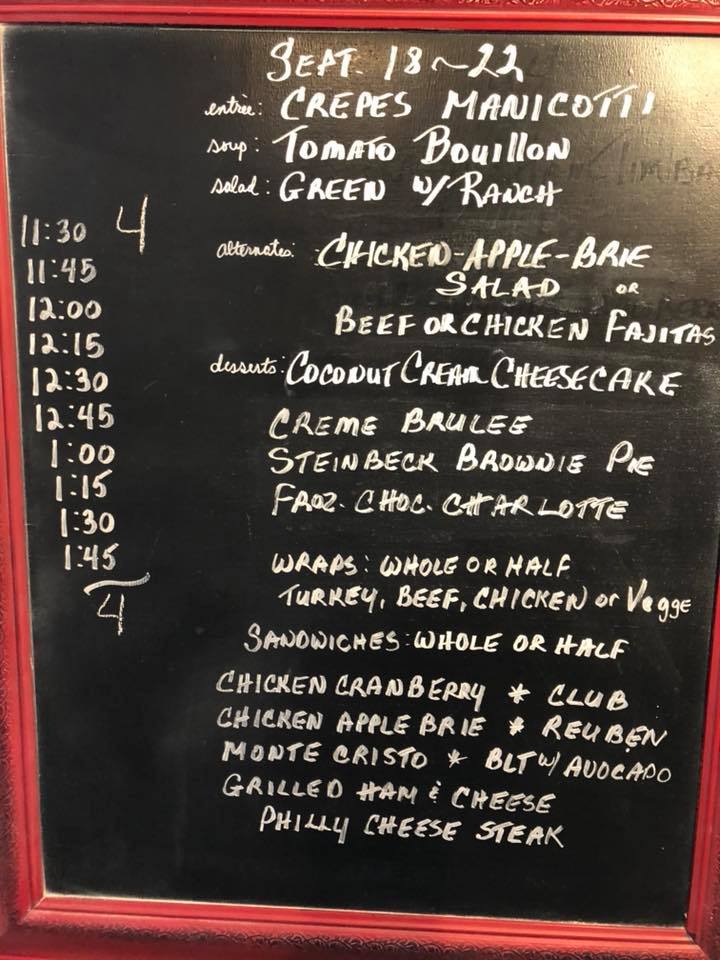 SEPT. 18~22
entrée: CREPES MANICOTTI
soup: TOMATO BOUILLON
salad: GREEN W/ RANCH
11:30 4
11:45
12:00
12:15
12:30
12:45
1:00
1:15
1:30
1:45
4
alternates: CHICKEN-APPLE-BRIE
SALAD OR
BEEF OR CHICKEN FAJITAS
desserts: COCONUT CREAM CHEESECAKE
CREME BRULEE
STEINBECK BROWNIE PIE
FROZ. CHOC. CHARLOTTE
WRAPS: WHOLE OR HALF
TURKEY, BEEF, CHICKEN or Vegge
SANDWICHES: WHOLE OR HALF
CHICKEN CRANBERRY * CLUB
CHICKEN APPLE BRIE * REUBEN
MONTE CRISTO * BLT W/ AVOCADO
GRILLED HAM & CHEESE
PHILLY CHEESE STEAK